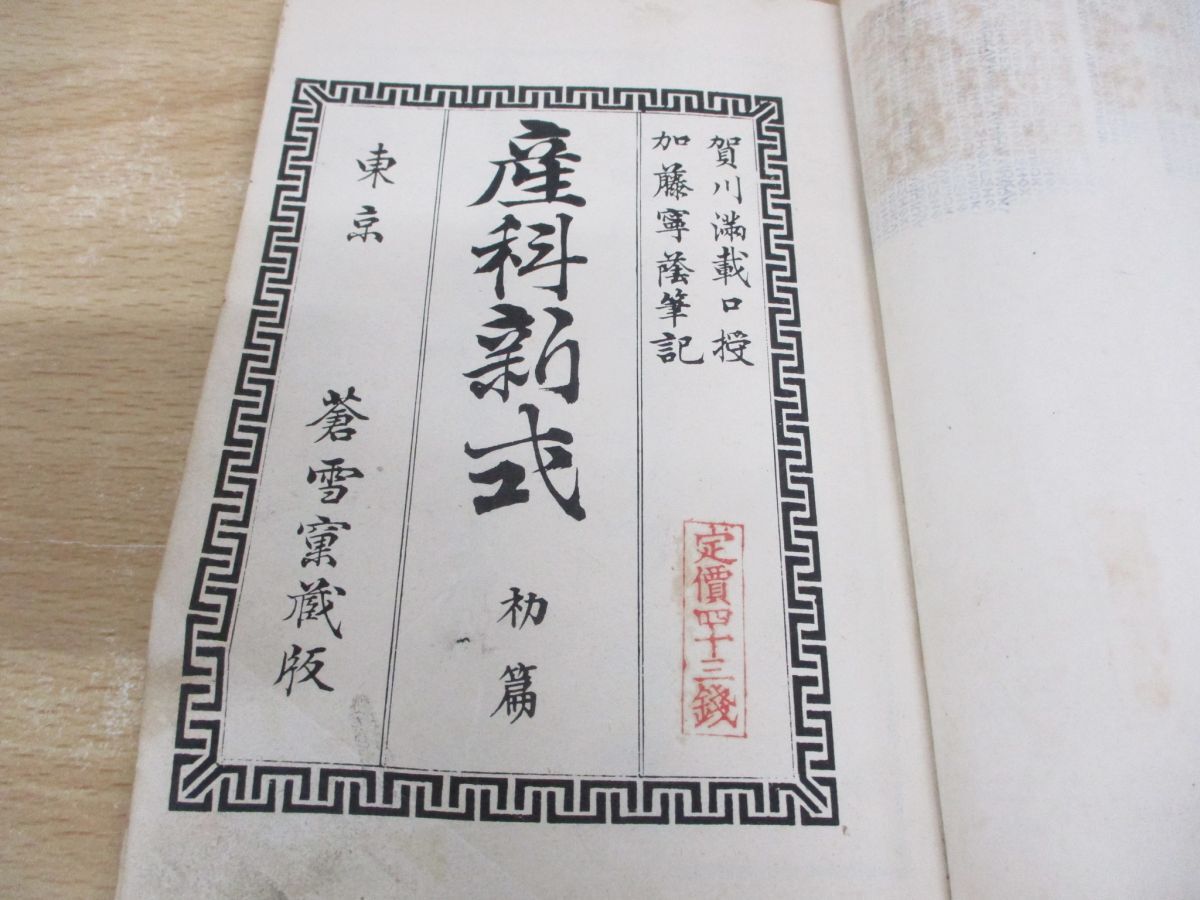 賀川満載口授
加藤寧蔭筆記
定價四十三錢
産科新式
初篇
東京
蒼雪窠蔵版